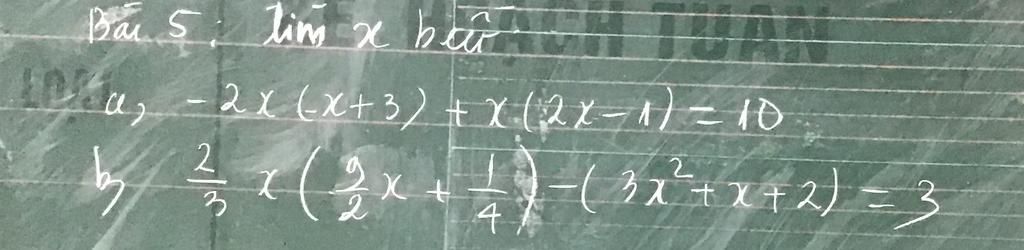 Bài 5: Tìm x biết
a, -2x(-x+3) + x(2x-1) = 10
b, \frac{2}{3} x ( \frac{9}{2} x + \frac{1}{4} ) - (3x² + x + 2) = 3